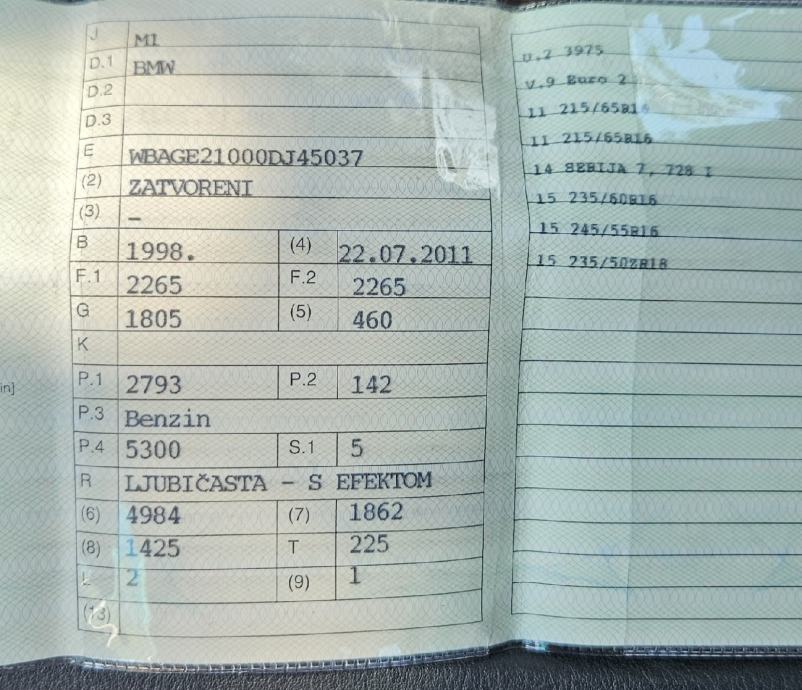 J M1
D.1 BMW
D.2
D.3
E WBAGE21000DJ45037
(2) ZATVORENI
(3) –
B 1998. (4) 22.07.2011
F.1 2265 F.2 2265
G 1805 (5) 460
K
P.1 2793 P.2 142
P.3 Benzin
P.4 5300 S.1 5
R LJUBIČASTA - S EFEKTOM
(6) 4984 (7) 1862
(8) 1425 T 225
L 2 (9) 1
(13)
in]
U.2 3975
V.9 Euro 2
11 215/65R16
11 215/65R16
14 SERIJA 7, 728 I
15 235/60R16
15 245/55R16
15 235/50ZR18